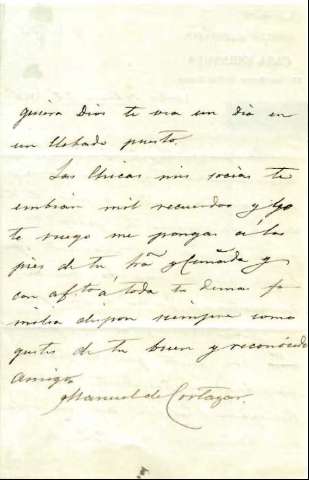 quiera Dios te vea un dia en
un elebado puesto.
Las Chicas mis socias te
embian mil recuerdos y yo
te ruego me pongas á los
pies de tu Srã y Cuñada y
con afto á toda tu demas fa
milia dispon siempre como
gustes de tu buen y reconocido
Amigo
Manuel de Cortazar.